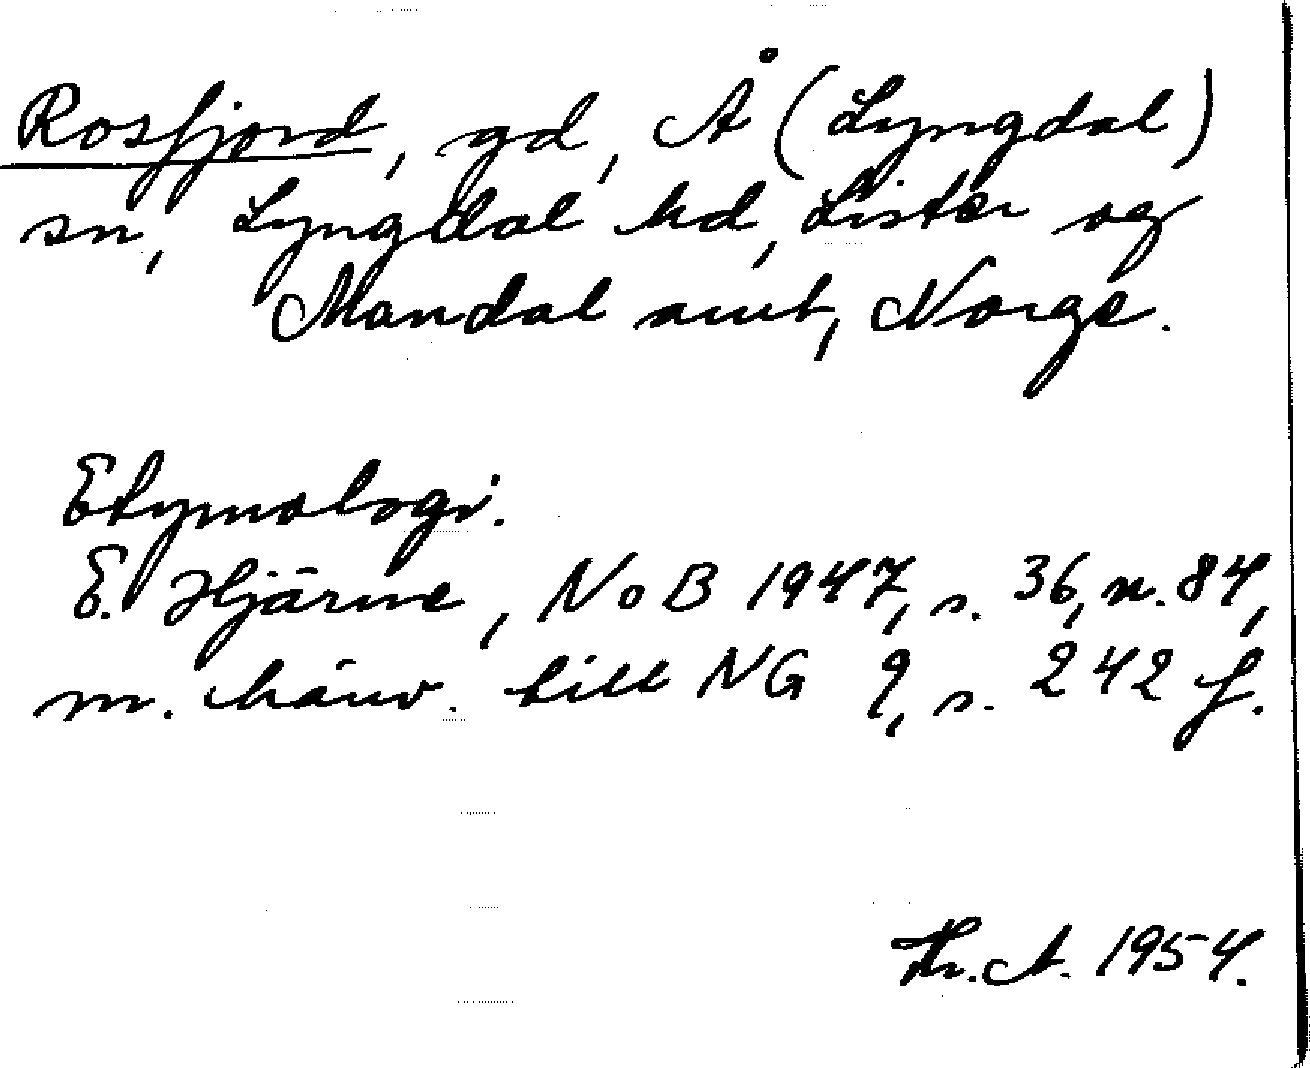 Rosfjord, gd, Å (Lyngdal)
sn, Lyngdal hd, Lister og
Mandal amt, Norge.
Etymologi.
E. Hjärne, NoB 1947, s. 36, n. 84,
m. hänv. till NG 9, s. 242 f.
Th. A. 1954.